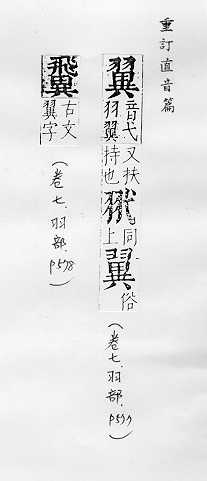 重訂直音篇
翼音弋羽翼又扶持也 同上翼俗(卷七.羽部.p577)
古文翼字(卷七.羽部.p578)